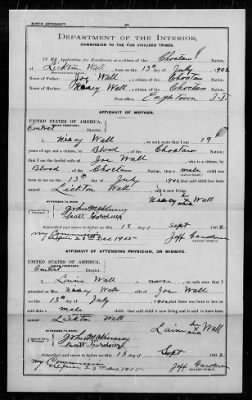 BIRTH AFFIDAVIT.
DEPARTMENT OF THE INTERIOR,
COMMISSION TO THE FIVE CIVILIZED TRIBES.
IN RE Application for Enrollment, as a citizen of the Choctaw Nation, of
Lickton Wall, born on the 13th day of July, 1902
Name of Father: Joe Wall, a citizen of the Choctaw Nation.
Name of Mother: Nancy Wall, a citizen of the Choctaw Nation.
Post-office Eagletown I.T.
AFFIDAVIT OF MOTHER.
UNITED STATES OF AMERICA,
Central District.
I, Nancy Wall, on oath state that I am 19
years of age and a citizen, by Blood, of the Choctaw Nation;
that I am the lawful wife of Joe Wall, who is a citizen, by
Blood of the Choctaw Nation; that a male child was
born to me on the 13th day of July, 1902, that said child has been
named Lickton Wall, and is now living.
Nancy Wall
WITNESSES TO MARK:
13 day of Sept 1902
My Commission
Jeff Gardner
AFFIDAVIT OF ATTENDING PHYSICIAN, OR MIDWIFE.
UNITED STATES OF AMERICA,
Central District.
Wall, a
attended on Mrs. Nancy Wall, wife of Joe Wall
on the 13th day of July, 1902, that there was born to her on
said date a male child; that said child is now living and is said to have been
named Lickton Wall
Wall
WITNESSES TO MARK:
13 day of Sept 1902
My Commission
Jeff Gardner